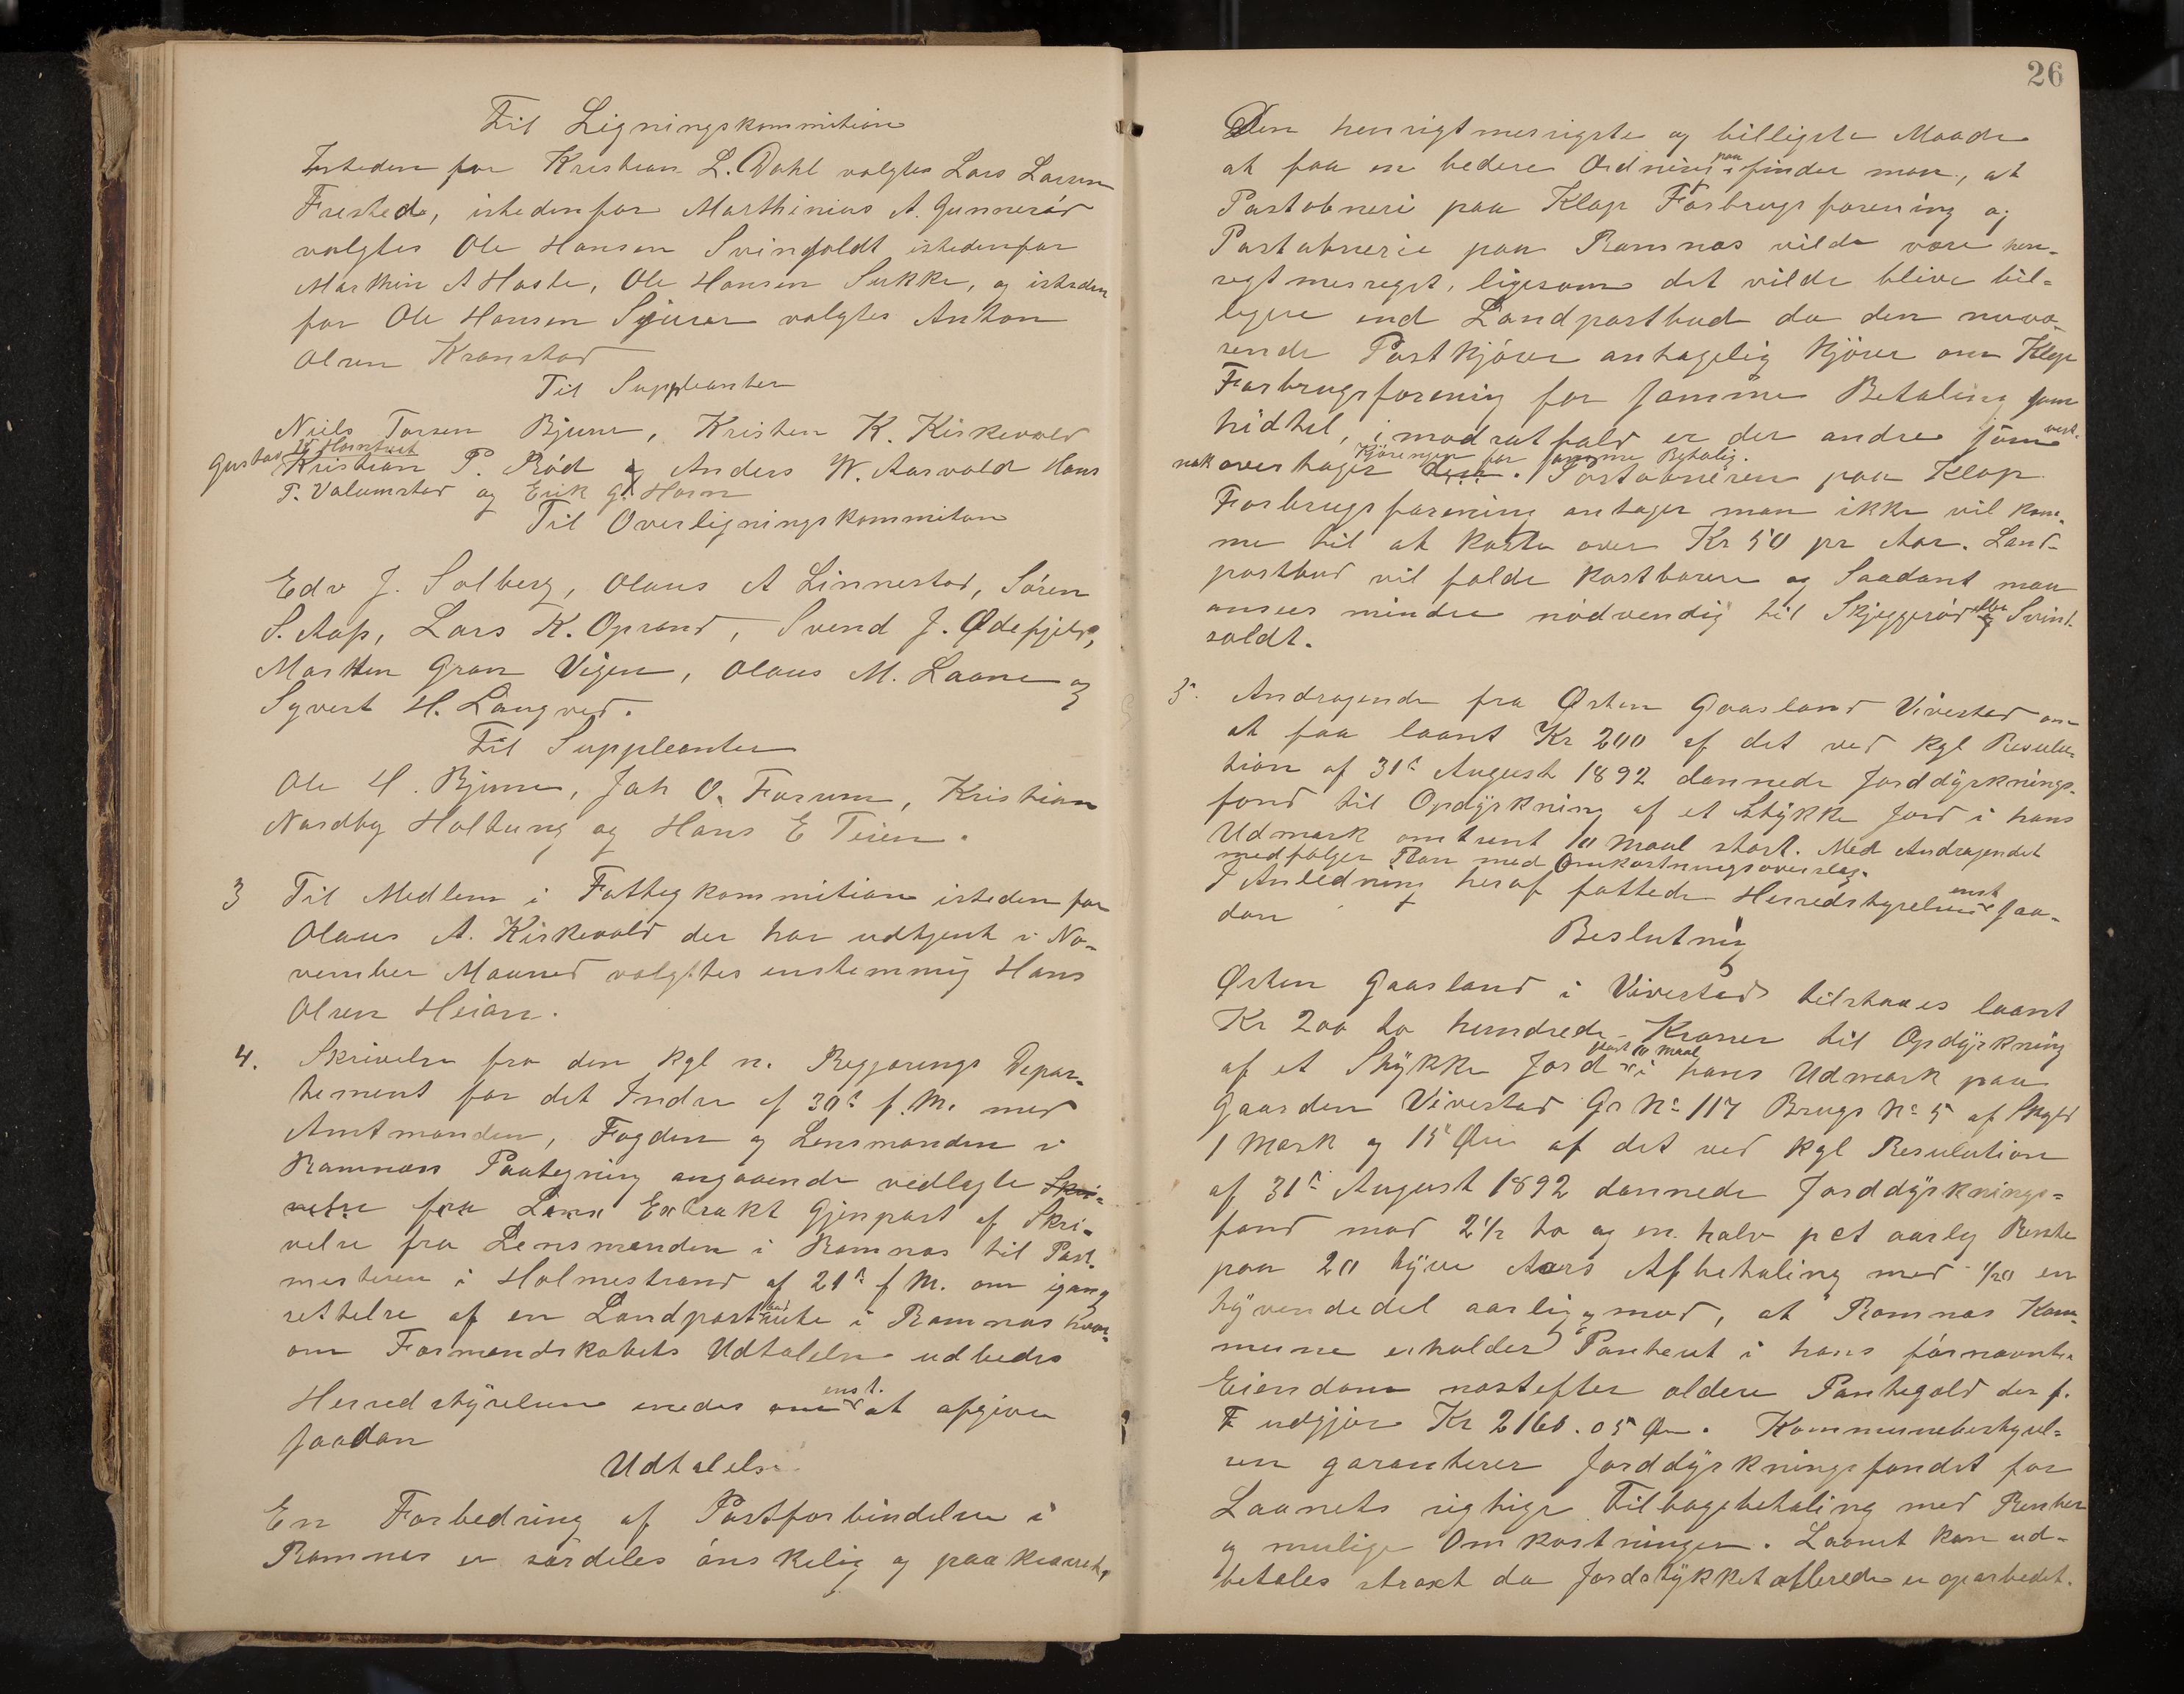 Til Ligningskommition
Isteden for Kristian L. Dahl valgtes Lars Larsen
Frested, istedenfor Marthinius A. Gunnerød
valgtes Ole Hansen Svingsoldt istedenfor
Marthin A Hasle, Ole Hansen Sukke, og isteden
for Ole Hansen valgtes Anton
Olsen Kranstad
Til Suppleanter
Niels Torsen Bjune, Kristen K. Kirkevold
Gustav
Kristian P. Rød og Anders W. Aasvold Hans
T. Valumstad og Erik G. Horn
Til Overligningskommiton
Edv J. Solberg, Olaus A Linnestad, Sören
S. Aap, Lars K. Oprand, Svend J. Ødefjeld,
Marthin Gran Vigen, Olaus M. Laane og
Syvert H. Langved.
Til Suppleanter
Ole H. Bjune, Joh O. Forum, Kristian
Nordby Holtung og Hans E Teien.
3 Til Medlem i Fattigkommition isteden for
Olaus A. Kirkevold der har udtjent i No-
vember Maaned valgtes enstemmig Hans
Olsen Heian.
4. Skrivelse fra den kgl n. Regjerings Depar-
tement for det Indre af 30te f. M. med
Amtmanden, Fogden og Lensmanden i
Ramnæs Paategning angaaende vedlagte Skri-
velse fra Lens Extrakt Gjenpart af Skri-
velse fra Lensmanden i Ramnæs til Post-
mesteren i Holmestrand af 21de f M. om igang
settelse af en Landpostrute i Ramnæs hvor-
om Formandskabets Udtalelse udbedes
enst.
Herredstyrelsen enedes om at afgive
saadan
Udtalelse
En Forbedring af Postforbindelsen i
Ramnæs er særdeles önskelig og paakrævet,
26
Den hensigtmessigste og billigste Maade
paa
at faa en bedere Ordning finder man, at
Postabneri paa Klop Forbrugsforening og
Postabnerie paa Ramnæs vilde være hen-
sigtmessigst, ligesom det vilde blive bil-
ligere end Landpostbud da den nuvæ-
rende Postkjörer antagelig kjörer om Klop
Forbrugsforening for samme Betaling som
hidtil, i modsatfald er der andre som vist-
Kjöringen for samme Betalig.
nok overtager den. Postabneren paa Klop
Forbrugsforening antager man ikke vil kom-
me til at koste over Kr 50 pr Aar. Land-
postbud vil falde kostbarere og Saadant maa
eller
ansees mindre nödvendig til Skjeggeröd og Svint-
soldt.
5. Andragende fra Østen Gaasland Vivestad om
at faa laant Kr 200 af det ved kgl Resulu-
tion af 31te August 1892 dannede Jorddyrknings-
fond til Opdyrkning af et Stykke Jord i hans
Udmark omtrent 10 Maal stort. Med Andragendet
medfølger Plan med Omkostningsoverslag.
enst
I Anledning heraf fattede Herredstyrelsen saa-
dan
Beslutnig
Østen Gaasland i Vivestad tilstaaes laant
Kr 200 to hundrede Kroner til Opdyrkning
stort 10 Maal
af et Stykke Jord i hans Udmark paa
Gaarden Vivestad Gr No 117 Brugs No 5 af Skyld
1 Mark og 15 Øre af det ved kgl Resulution
af 31te August 1892 dannede Jorddyrknings-
fond mod 2½ to og en halv pct aarlig Rente
paa 20 tyve Aars Afbetaling med 1/20 en
tyvendedel aarlig og mod, at Ramnæs Kom-
mune erholder Panteret i hans førnævnte
Eiendom næstefter ældere Pantegæld der f.
T udgjør Kr 2160.05 Øre. Kommunebestyrel-
sen garanterer Jorddyrkningsfondet for
Laanets rigtige Tilbagebetaling med Renter
og mulige Omkostninger. Laanet kan ud-
betales straxt da Jordstykket allerede er oparbedet.